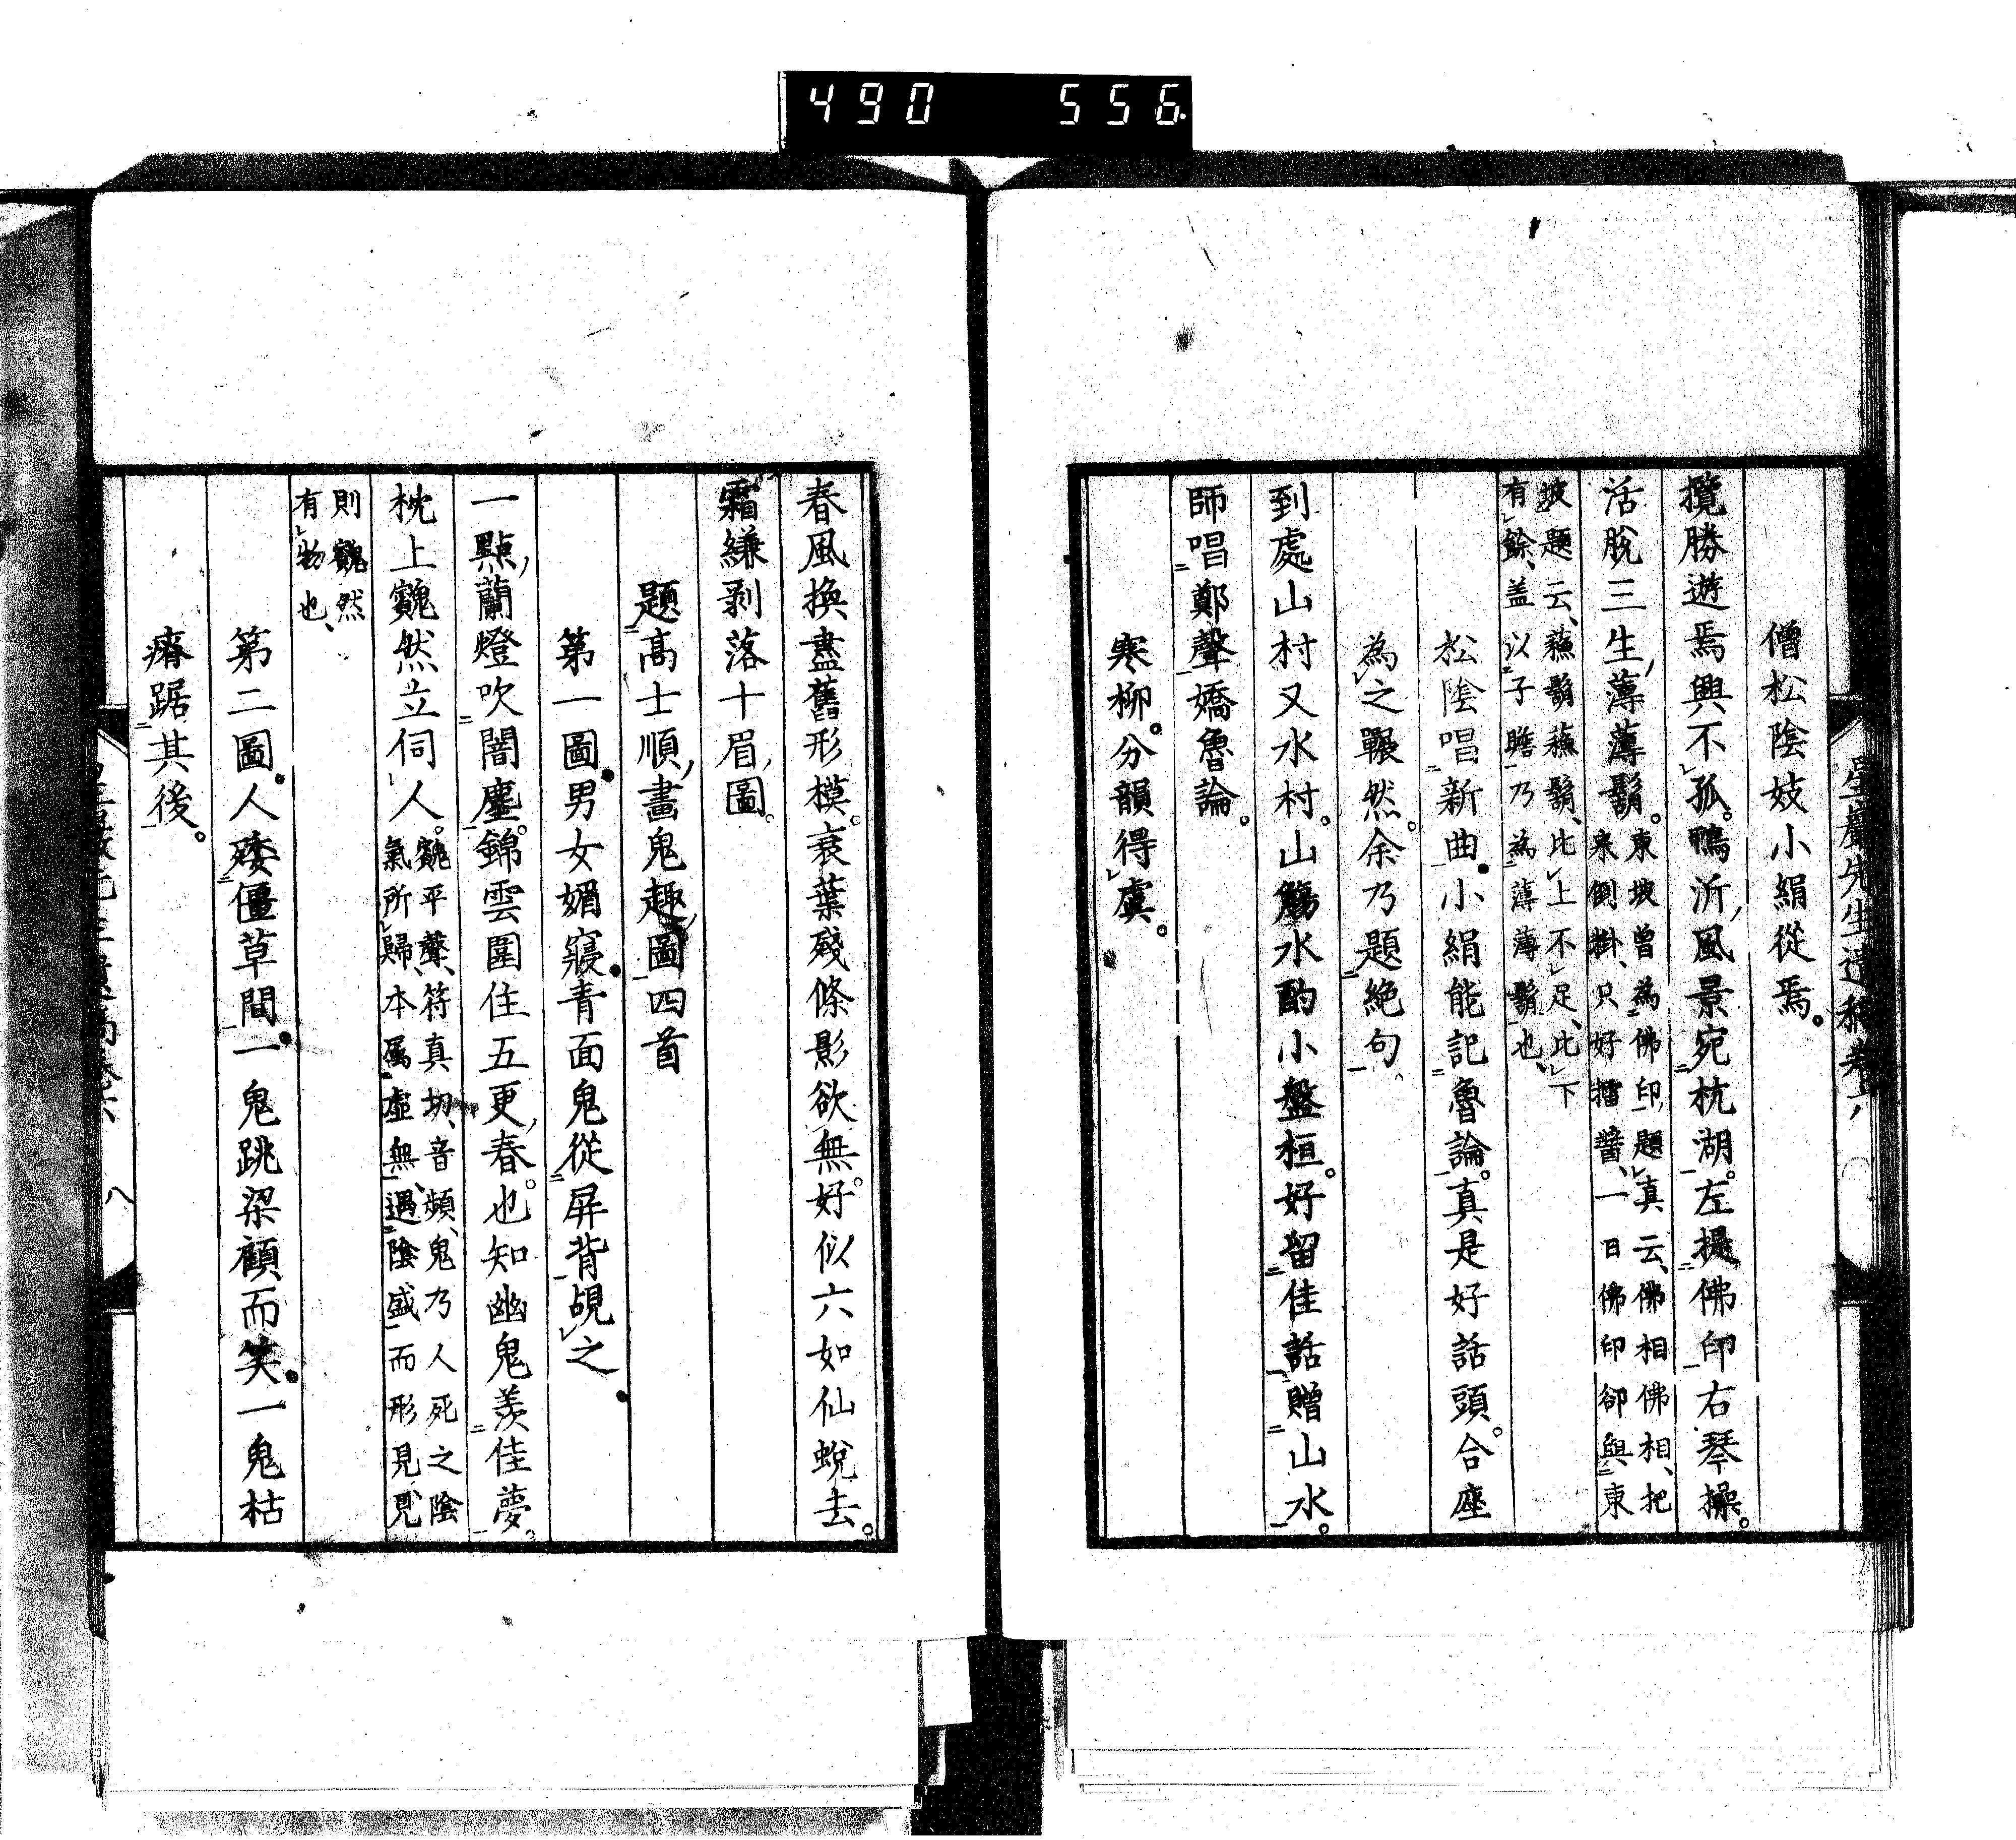 星巖先生遺稿卷六
僧松陰妓小絹從焉。
攬勝遊焉興不孤。鴨沂風景宛杭湖。左提佛印右琴操。
活脫三生薄薄鬍。
東坡曾為佛印題真云、佛相佛相、把
來倒掛、只好擂醬、一日佛印卻與東
坡題云、蘓鬍蘓鬍、比上不足、比下
有餘、盖以子瞻乃為薄薄鬍也、
松陰唱新曲。小絹能記魯論。真是好話頭。合座
為之囅然。余乃題絕句。
到處山村又水村。山觴水酌小盤桓。好留佳話贈山水。
師唱鄭聲嬌魯論。
寒柳。分韻得虞。
春風換盡舊形模。衰葉殘條影欲無。好似六如仙蛻去。
霜縑剥落十眉圖。
題高士順畫鬼趣圖四首
第一圖。男女媚寢。青面鬼從屏背覘之。
一點蘭燈吹闇塵。錦雲圍住五更春。也知幽鬼羨佳夢。
枕上然立伺人。
平聲、符真切、音頻、鬼乃人死之陰
氣所歸、本属虛無、遇陰盛而形見、見
則然
有物也、
第二圖。人殘僵草間。一鬼跳梁顧而笑。一鬼枯
瘠踞其後。
八